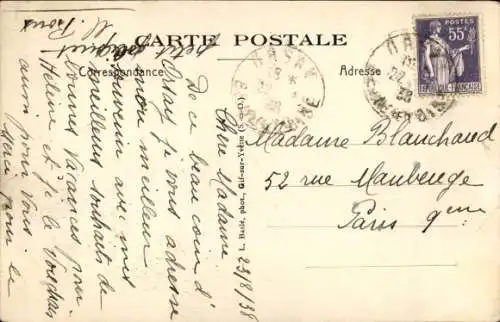 CARTE POSTALE
Correspondance
Adresse
POSTES
55c
REPUBLIQUE FRANÇAISE
ORSAY
SEINE ET OISE
38
ORSAY
38
Madame Blanchaud
52 rue Maubeuge
Paris 9eme
Basle, phot., Gif-sur-Yvette (S.-et-O.)
23/8/38
Chère Madame
De ce beau coin d'
Orsay je vous adresse
mon meilleur
souvenir avec mes
meilleurs souhaits de
bonnes vacances pour
Hélène et je le voudrais
aussi pour vous